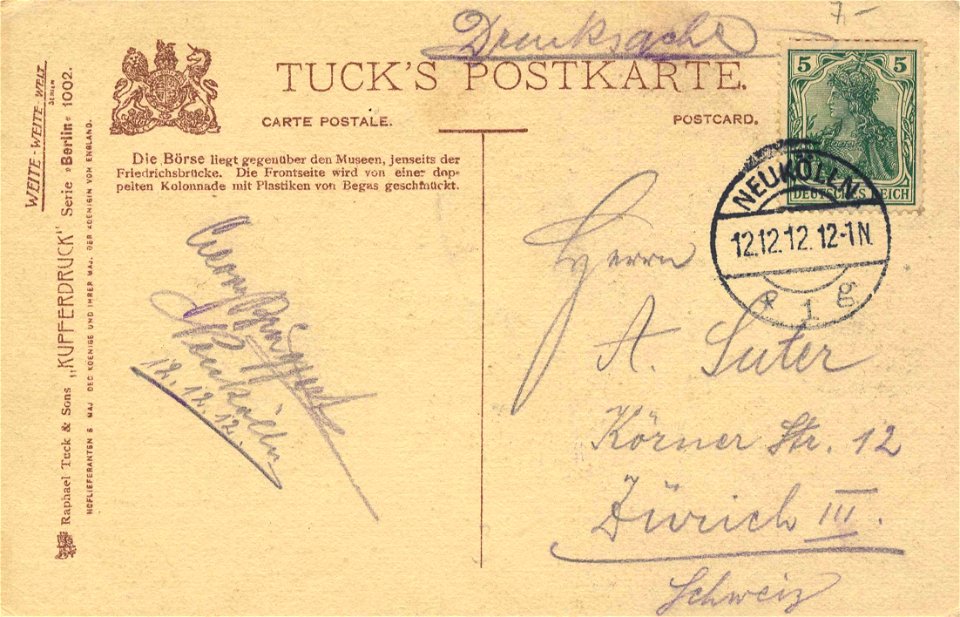 7.–
Drucksache
TUCK'S POSTKARTE.
CARTE POSTALE.
POSTCARD.
5 5
DEUTSCHES REICH
NEUKÖLLN.
12.12.12. 12-1N.
* 1 g
Die Börse liegt gegenüber den Museen, jenseits der
Friedrichsbrücke. Die Frontseite wird von einer dop-
pelten Kolonnade mit Plastiken von Begas geschmückt.
Georg
Neukölln
12.12.12.
Herrn
A. Suter
Körner Str. 12
Zürich III.
Schweiz
WEITE-WEITE-WELT
SERIEN
Raphael Tuck & Sons „KUPFERDRUCK" Serie »Berlin« 1002.
HOFLIEFERANTEN S. MAJ. DES KOENIGS UND IHRER MAJ. DER KOENIGIN VON ENGLAND.